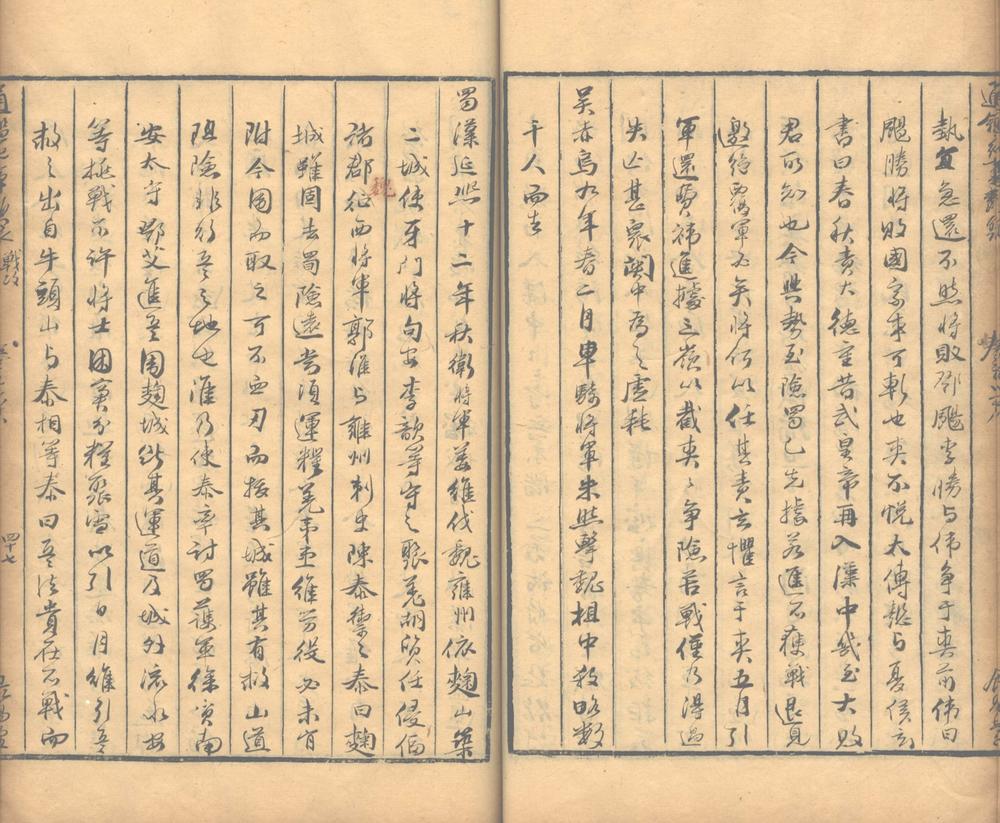 執宜急還不然將敗鄧颺李勝与伟争于爽前伟曰
颺勝將敗國家事可斬也爽不悅太傅懿与夏侯玄
書曰春秋責大德重昔武皇帝再入漢中幾至大敗
君所知也今興勢至險蜀已先據若進不獲戰退見
邀絶覆軍必矣將何以任其責玄懼言于爽五月引
軍還費禕進據三嶺以截爽〻争險苦戰僅乃得過
失亡甚衆関中爲之虛耗
吴赤烏九年春二月車騎將軍朱然擊魏柤中殺略數
千人而去
蜀漢延熙十二年秋衛將軍姜維伐魏雍州依麴山築
二城使牙门將句安李歆等守之聚羌胡質任侵偪
諸郡魏征西將軍郭淮与雍州刺史陳泰禦之泰曰麴
城雖固去蜀險遠当須運糧羌夷患維勞役必未肯
附今圍而取之可不血刃而拔其城雖其有救山道
阻險非行兵之地也淮乃使泰率討蜀護軍徐質南
安太守鄧艾進兵圍麴城斷其運道及城外流水安
等挺戰不许將士困窘分糧聚雪以引日月維引兵
救之出自牛頭山与泰相對泰曰兵法貴在不戰而
戰攻
四十七